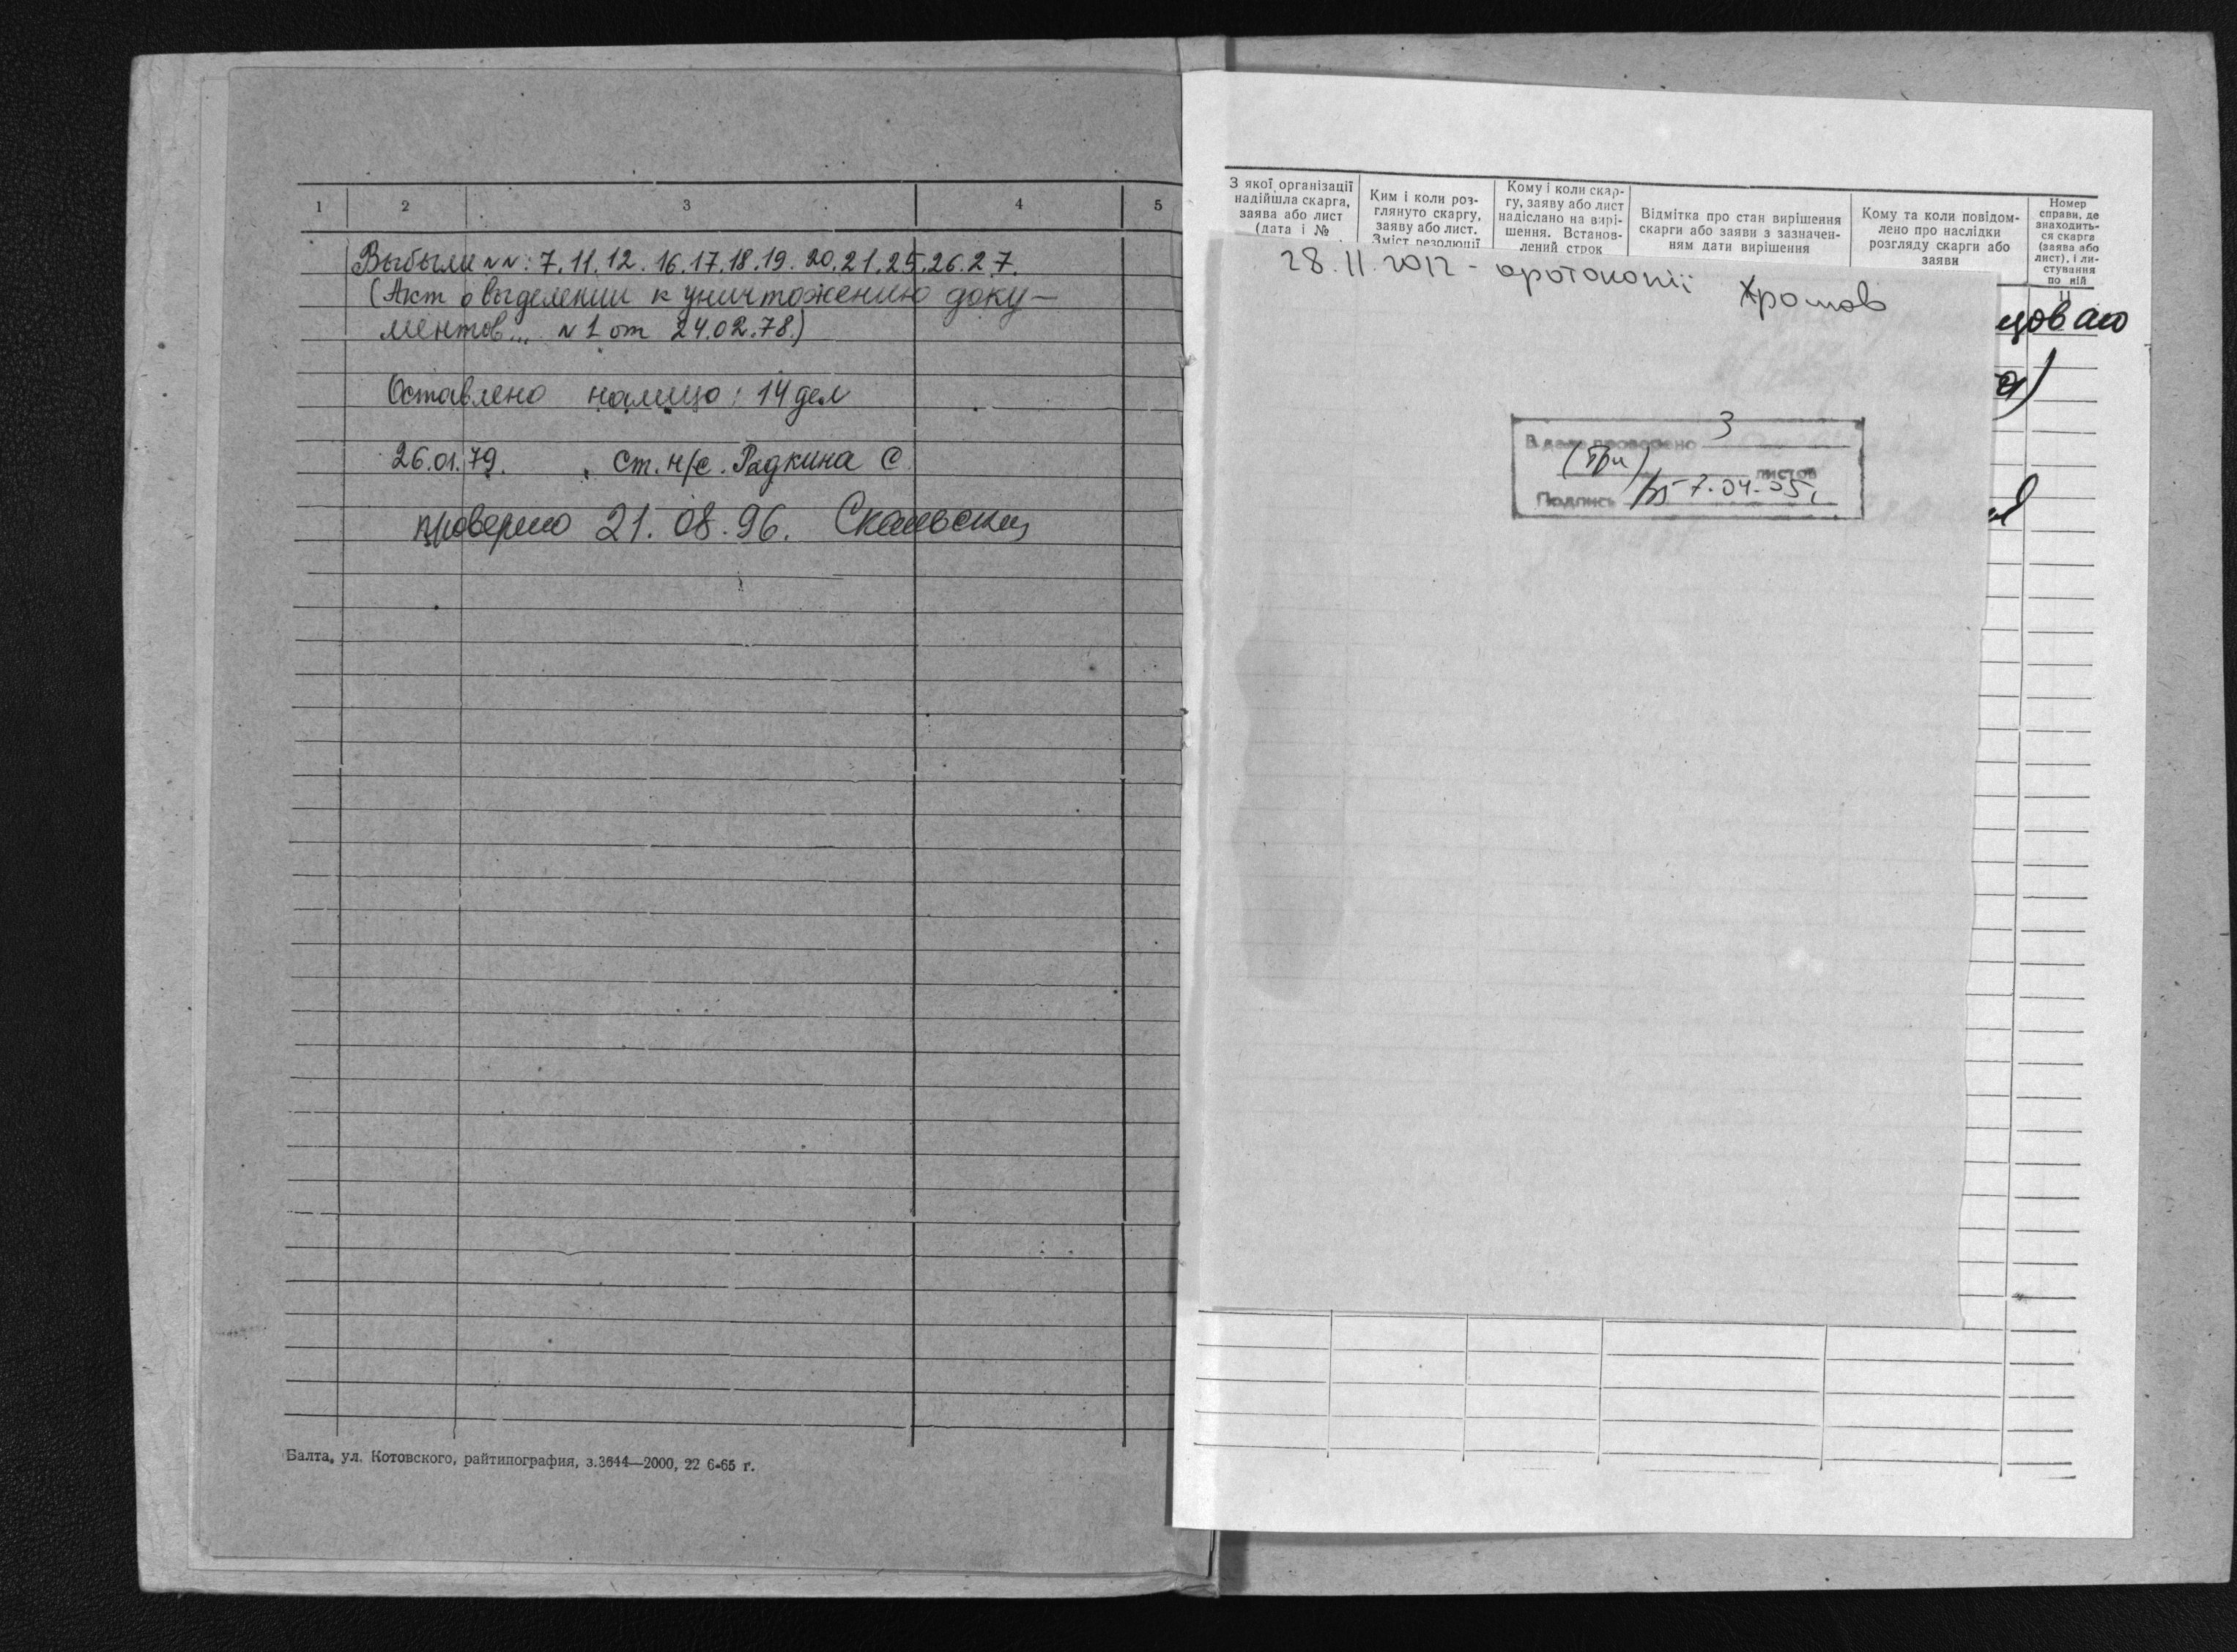 1 2 3 4 5
Выбыли NN: 7.11.12.16.17.18.19.20.21.25.26.27.
(Акт о выделении к уничтожению доку-
ментов... N 1 от 24.02.78.)
Оставлено налицо: 14 дел
26.01.79. Ст. н/с. Радкина С.
проверено 21.08.96.
Балта, ул. Котовского, райтипография, з.3644—2000, 22 6-65 г.
З якої організації
надійшла скарга,
заява або лист
(дата і №
Ким і коли роз-
глянуто скаргу,
заяву або лист.
Зміст резолюції
Кому і коли скар-
гу, заяву або лист
надіслано на вирі-
шення. Встанов-
лений строк
Відмітка про стан вирішення
скарги або заяви з зазначен-
ням дати вирішення
Кому та коли повідом-
лено про наслідки
розгляду скарги або
заяви
Номер
справи, де
знаходить-
ся скарга
(заява або
лист), і ли-
стування
по ній
11
28.11.2012 - протокопії Хромов
В деле проверено 3
(три) листов
Подпись 7.04.05г.